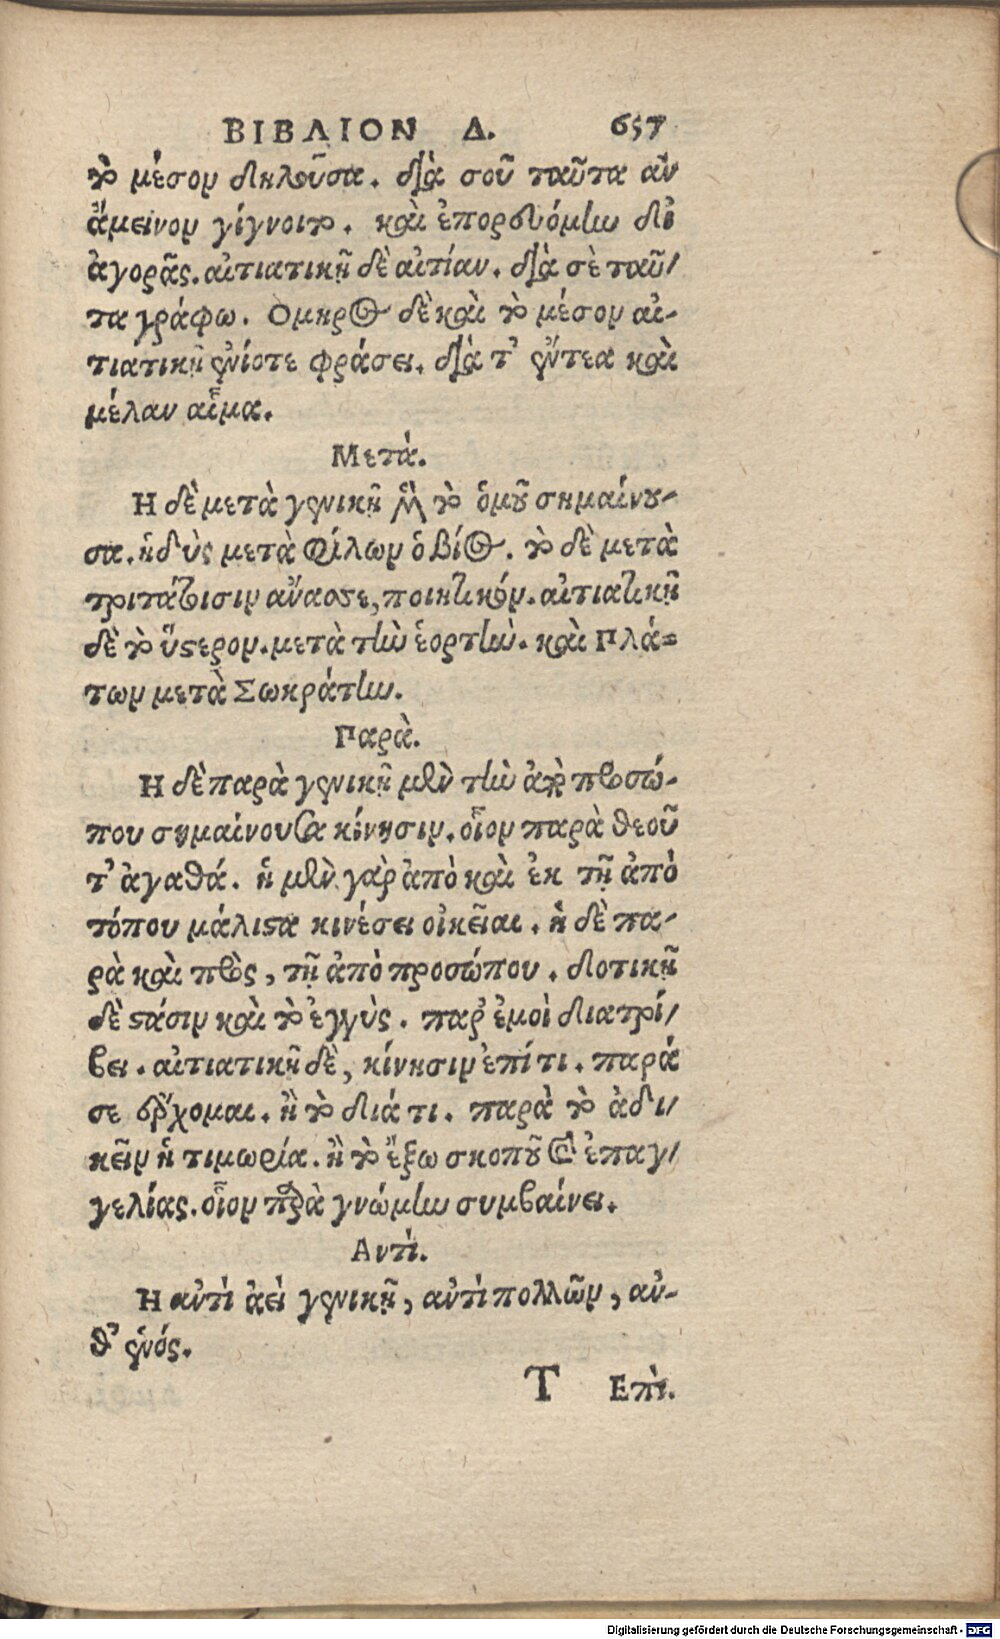 ΒΙΒΛΙΟΝ Δ. 657
τὸ μέσον δηλοῦσα. διὰ σοῦ ταῦτα ἂν
ἄμεινον γίγνοιτο. καὶ ἐπορευόμην δι'
ἀγορᾶς. αἰτιατικῇ δὲ αἰτίαν. διὰ σὲ ταῦ/
τα γράφω. Ομηρος δὲ καὶ τὸ μέσον αἰ-
τιατικῇ ἐνίοτε φράσει. διὰ τ' ἔντεα καὶ
μέλαν αἷμα.
Μετά.
Η δὲ μετὰ γενικῇ μὲν τὸ ὁμοῦ σημαίνου-
σα. ἡδὺς μετὰ φίλων ὁ βίος. τὸ δὲ μετὰ
τριτάτοισιν ἄνασσε, ποιητικόν. αἰτιατικῇ
δὲ τὸ ὕστερον. μετὰ τὴν ἑορτήν. καὶ Πλά-
των μετὰ Σωκράτην.
Παρὰ.
Η δὲ παρὰ γενικῇ μὲν τὴν ἀπὸ προσώ-
που σημαίνουσα κίνησιν. οἷον παρὰ θεοῦ
τ' ἀγαθά. ἡ μὲν γὰρ ἀπὸ καὶ ἐκ τῇ ἀπὸ
τόπου μάλιστα κινέσει οἰκεῖαι. ἡ δὲ πα-
ρὰ καὶ πρὸς, τῇ ἀπὸ προσώπου. δοτικῇ
δὲ στάσιν καὶ τὸ ἐγγὺς. παρ' ἐμοὶ διατρί/
βει. αἰτιατικῇ δὲ, κίνησιν ἐπί τι. παρά
σε ἔρχομαι. ἢ τὸ διά τι. παρὰ τὸ ἀδι/
κεῖν ἡ τιμωρία. ἢ τὸ ἔξω σκοποῦ καὶ ἐπαγ/
γελίας. οἷον παρὰ γνώμην συμβαίνει.
Αντὶ.
Η ἀντὶ ἀεὶ γενικῇ, ἀντὶ πολλῶν, ἀν-
θ' ἑνός.
Τ Επὶ.
Digitalisierung gefördert durch die Deutsche Forschungsgemeinschaft - DFG